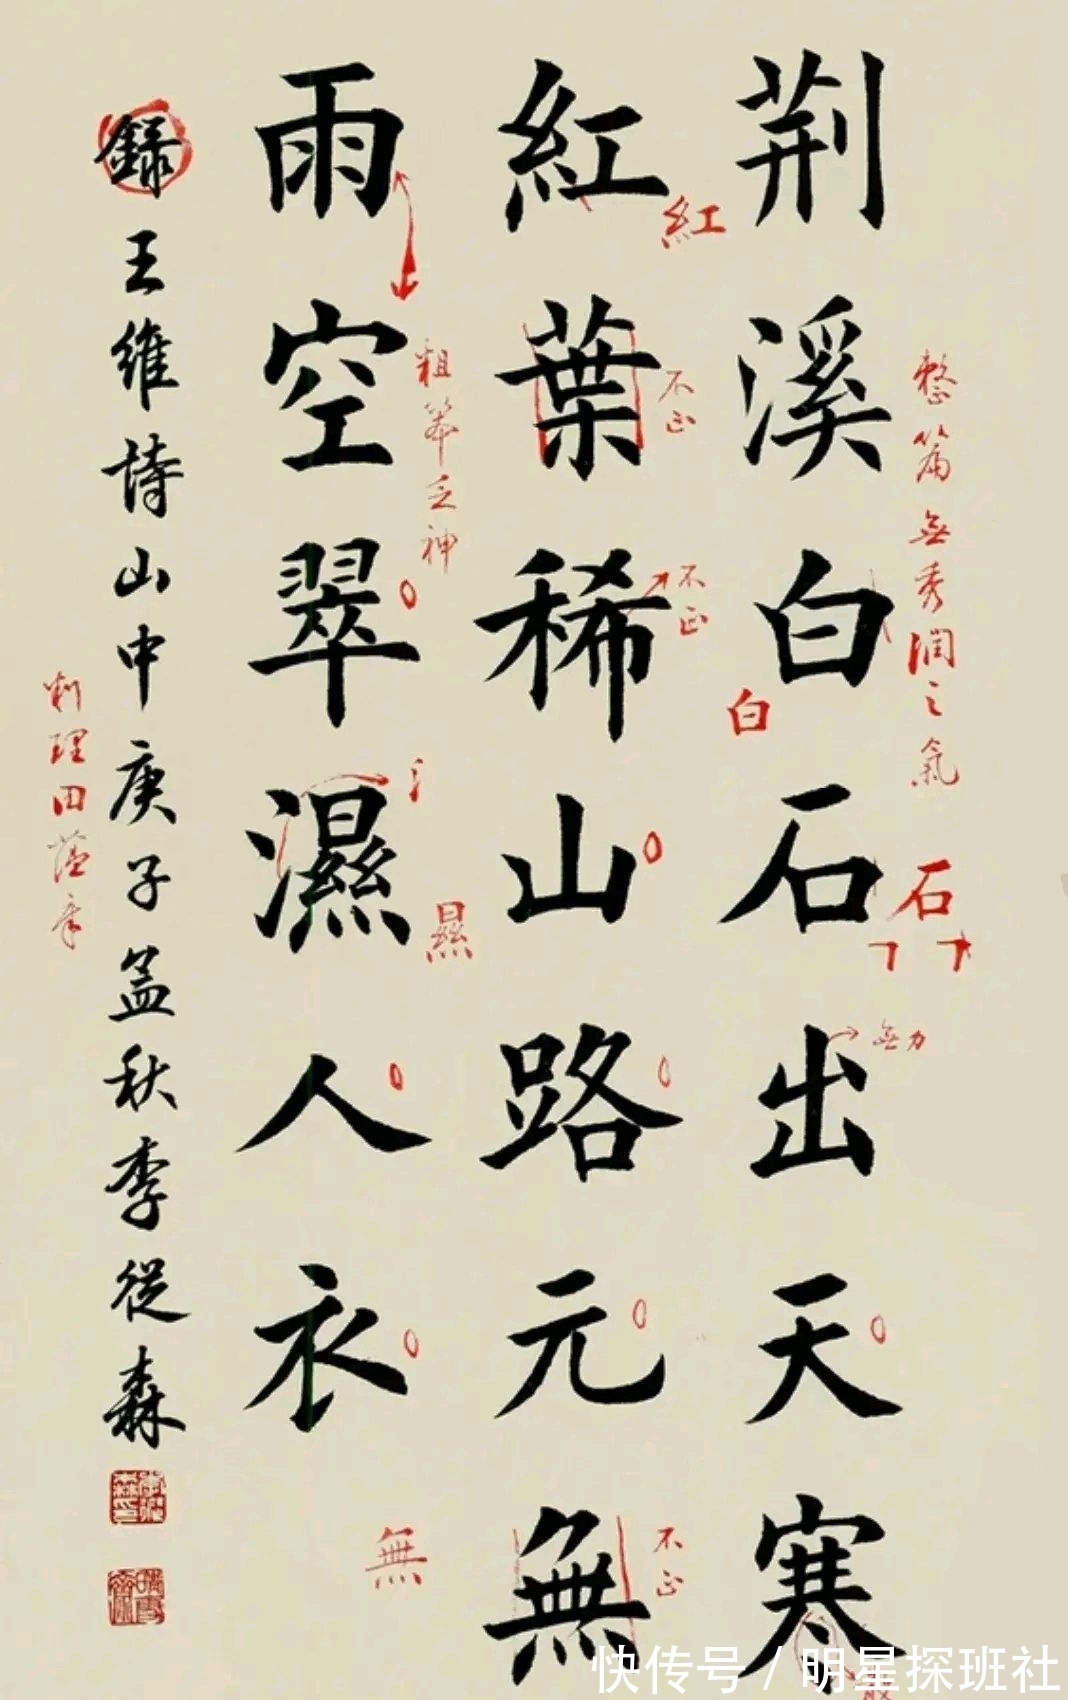 荆溪白石出天寒
紅葉稀山路元無
雨空翠濕人衣
錄王維詩山中庚子孟秋李從森
整篇無秀潤之氣
紅
不正
不正
白
石
無力
粗笨乏神
㬎
不正
無
快传号/明星探班社